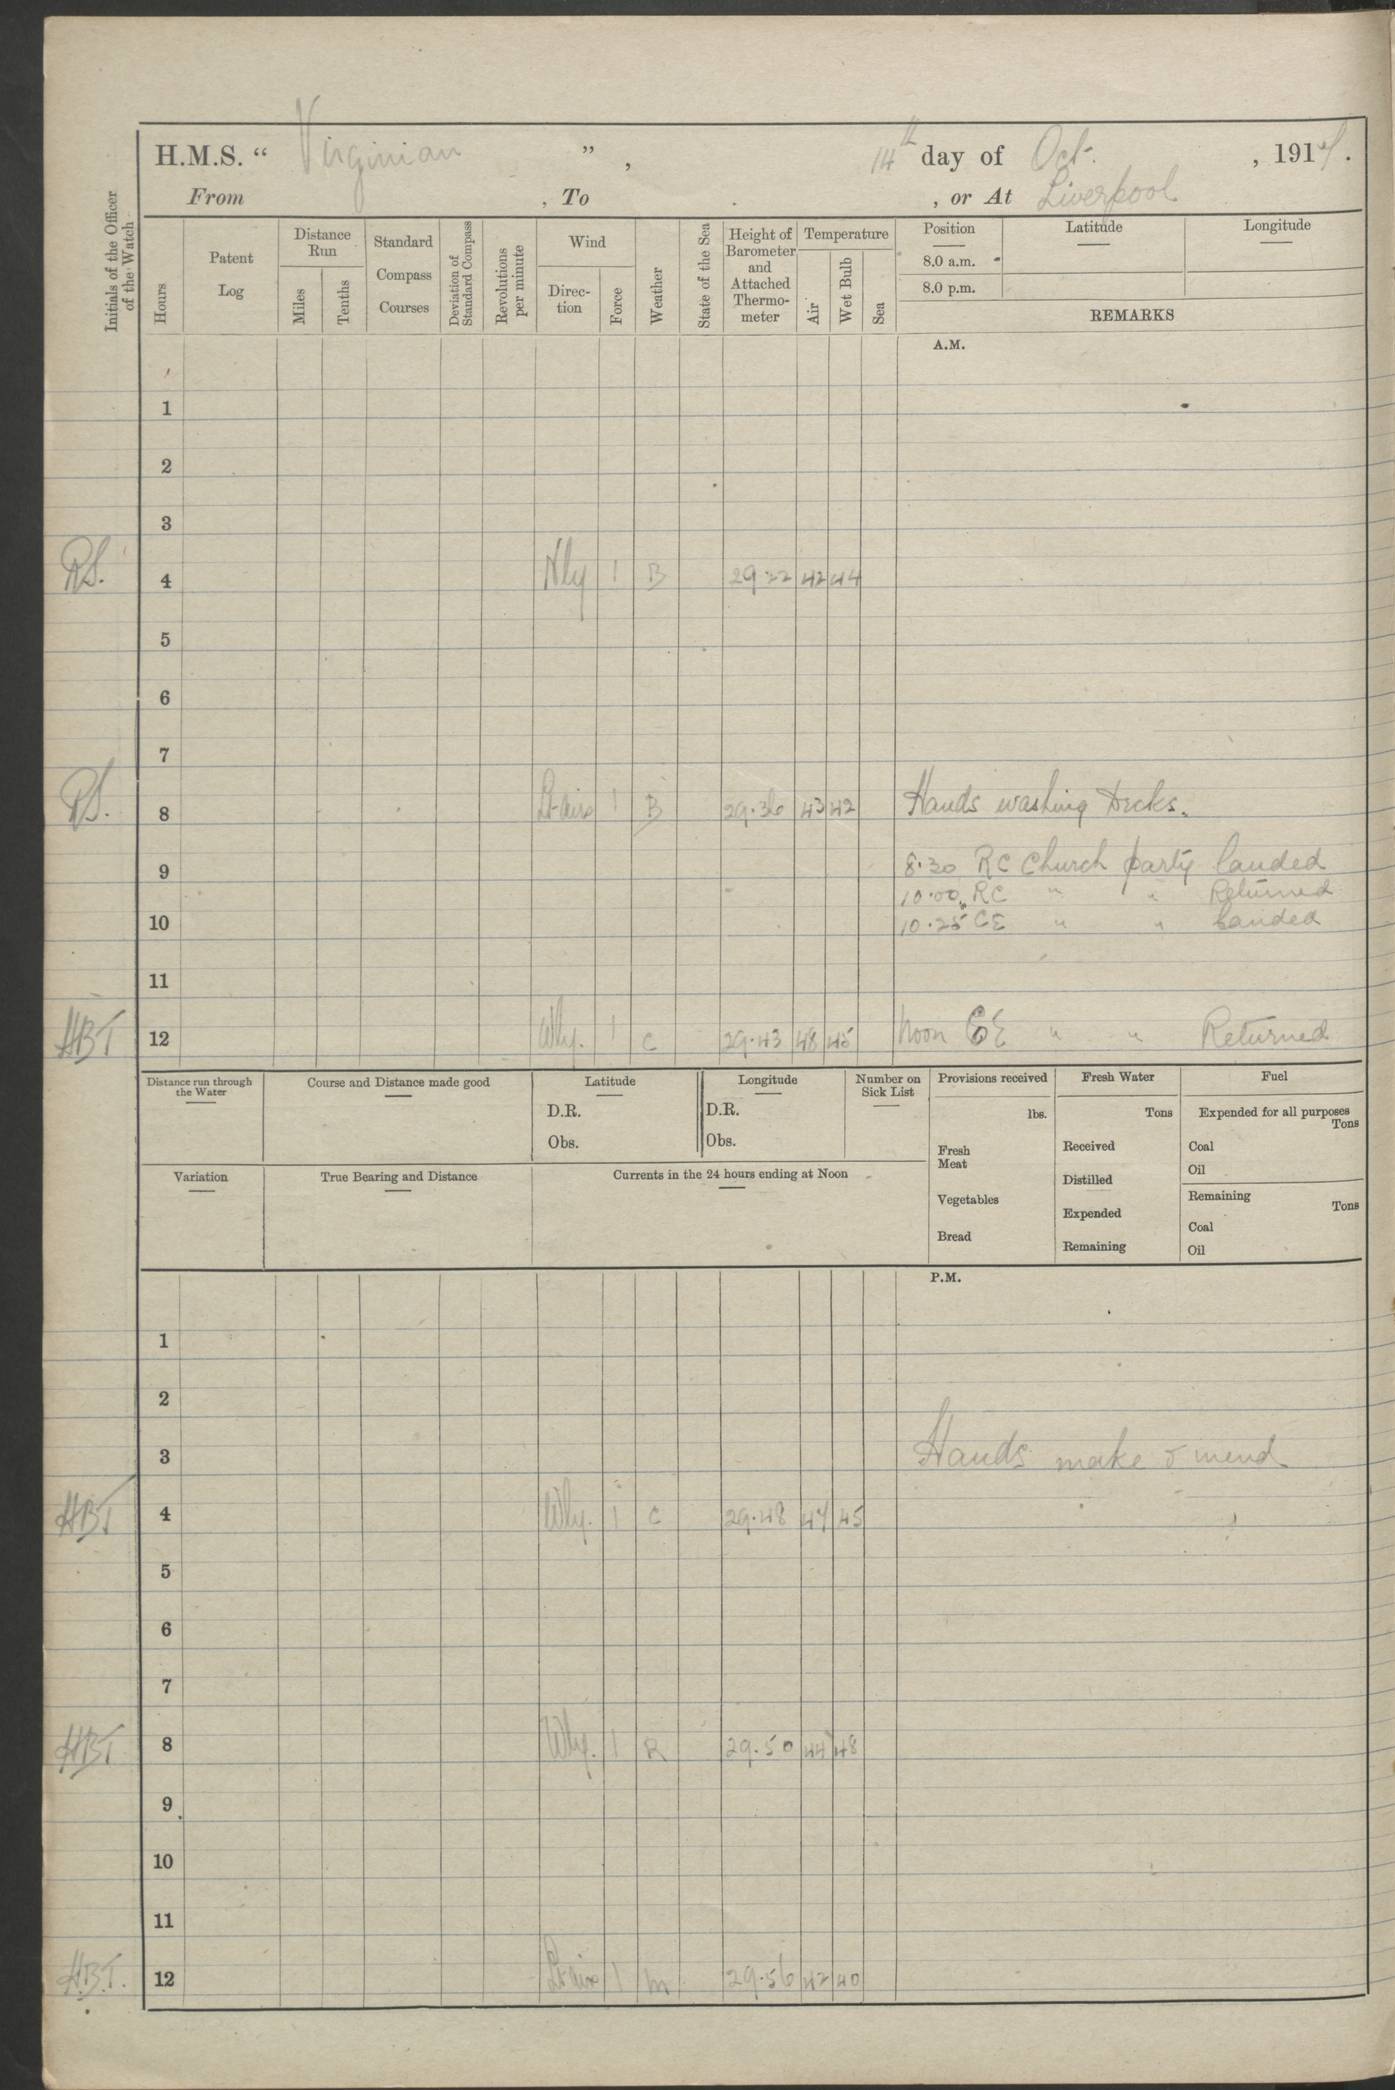 H.M.S. “ Virginian ” , 14th day of Oct. , 1917.
From , To , or At Liverpool
Initials of the Officer of the Watch
Hours
Patent Log
Distance Run
Miles
Tenths
Standard Compass Courses
Deviation of Standard Compass
Revolutions per minute
Wind
Direc-tion
Force
Weather
State of the Sea
Height of Barometer and Attached Thermo-meter
Temperature
Air
Wet Bulb
Sea
Position
Latitude
Longitude
8.0 a.m.
8.0 p.m.
REMARKS
A.M.
1
2
3
RS. 4 Nly 1 B 29.32 42 44
5
6
7
RS. 8 Lt airs 1 B 29.36 43 42 Hands washing Decks.
9 8.30 RC Church party landed
10.00 RC " " Returned
10 10.25 CE " " Landed
11
HBT 12 Wly. 1 C 29.43 48 45 Noon CE " " Returned
Distance run through the Water
Course and Distance made good
Latitude
D.R.
Obs.
Longitude
D.R.
Obs.
Number on Sick List
Provisions received
lbs.
Fresh Meat
Vegetables
Bread
Fresh Water
Tons
Received
Distilled
Expended
Remaining
Fuel
Expended for all purposes
Tons
Coal
Oil
Remaining
Tons
Coal
Oil
Variation
True Bearing and Distance
Currents in the 24 hours ending at Noon
P.M.
1
2
3 Hands make & mend
HBT 4 Wly. 1 C 29.48 47 45
5
6
7
HBT 8 Wly. 1 R 29.50 44 48
9
10
11
H.B.T. 12 Lt airs 1 m 29.56 42 40